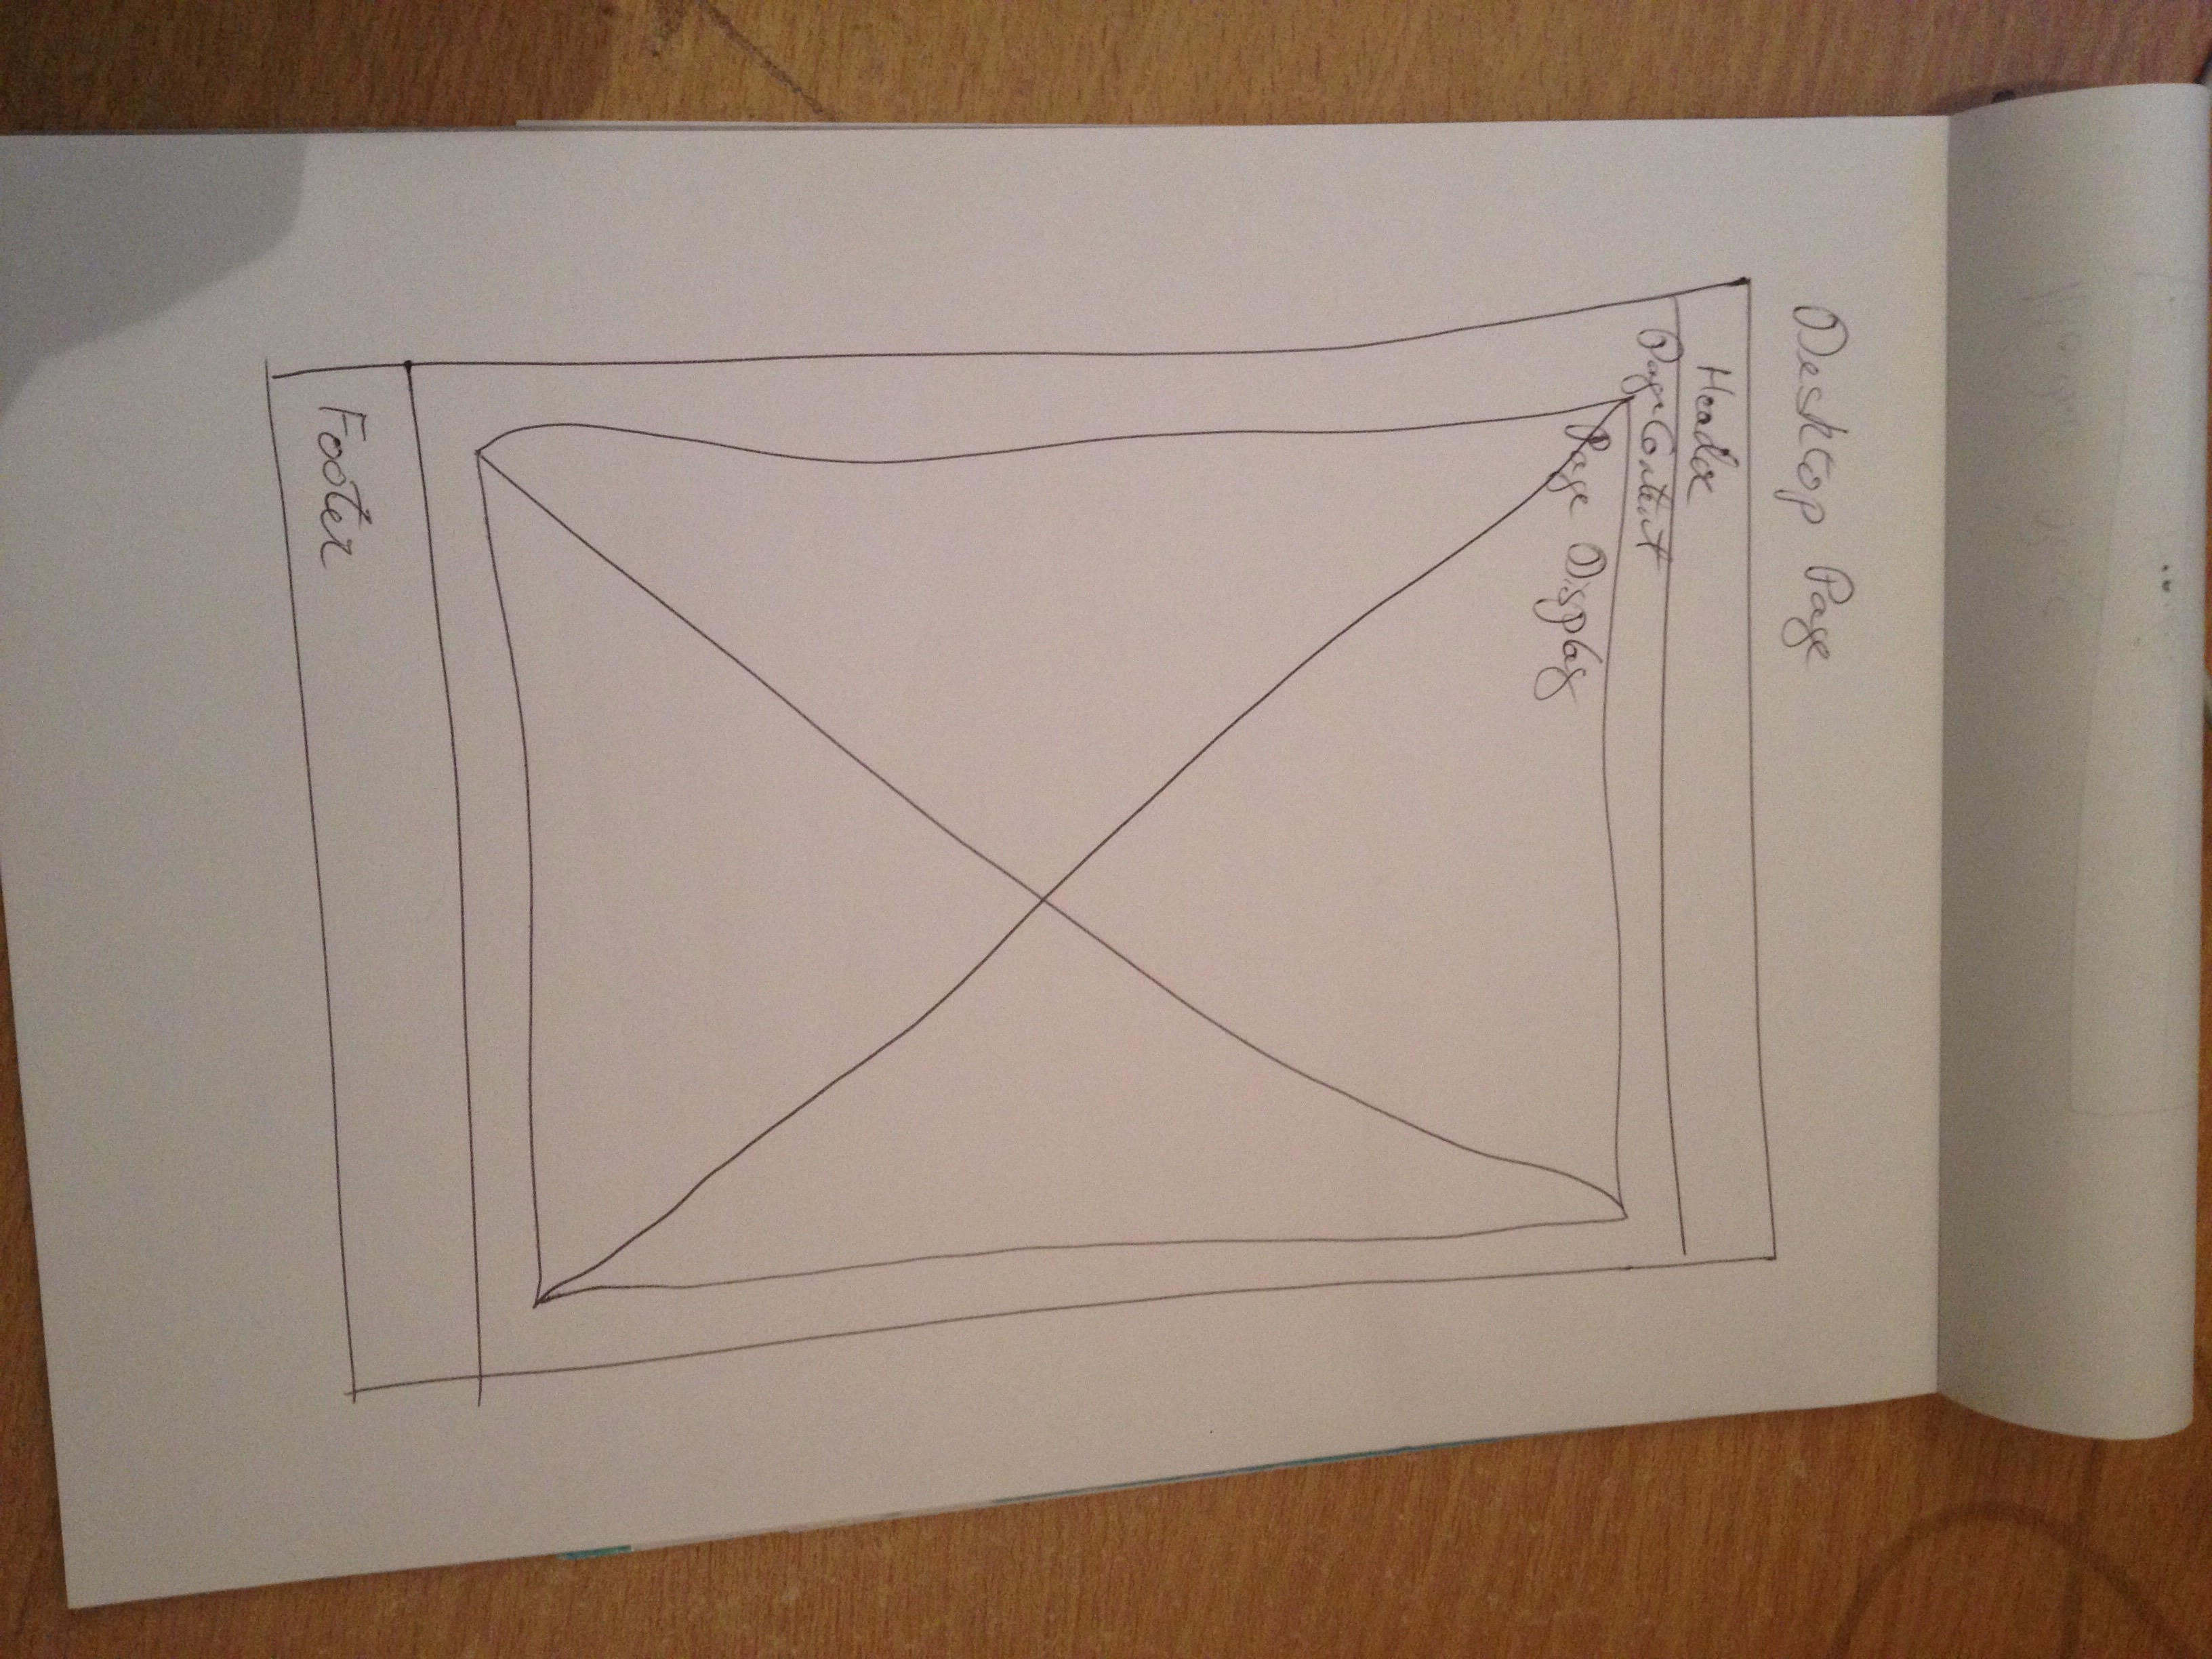 Desktop Page
Header
Page Content
Page Display
Footer